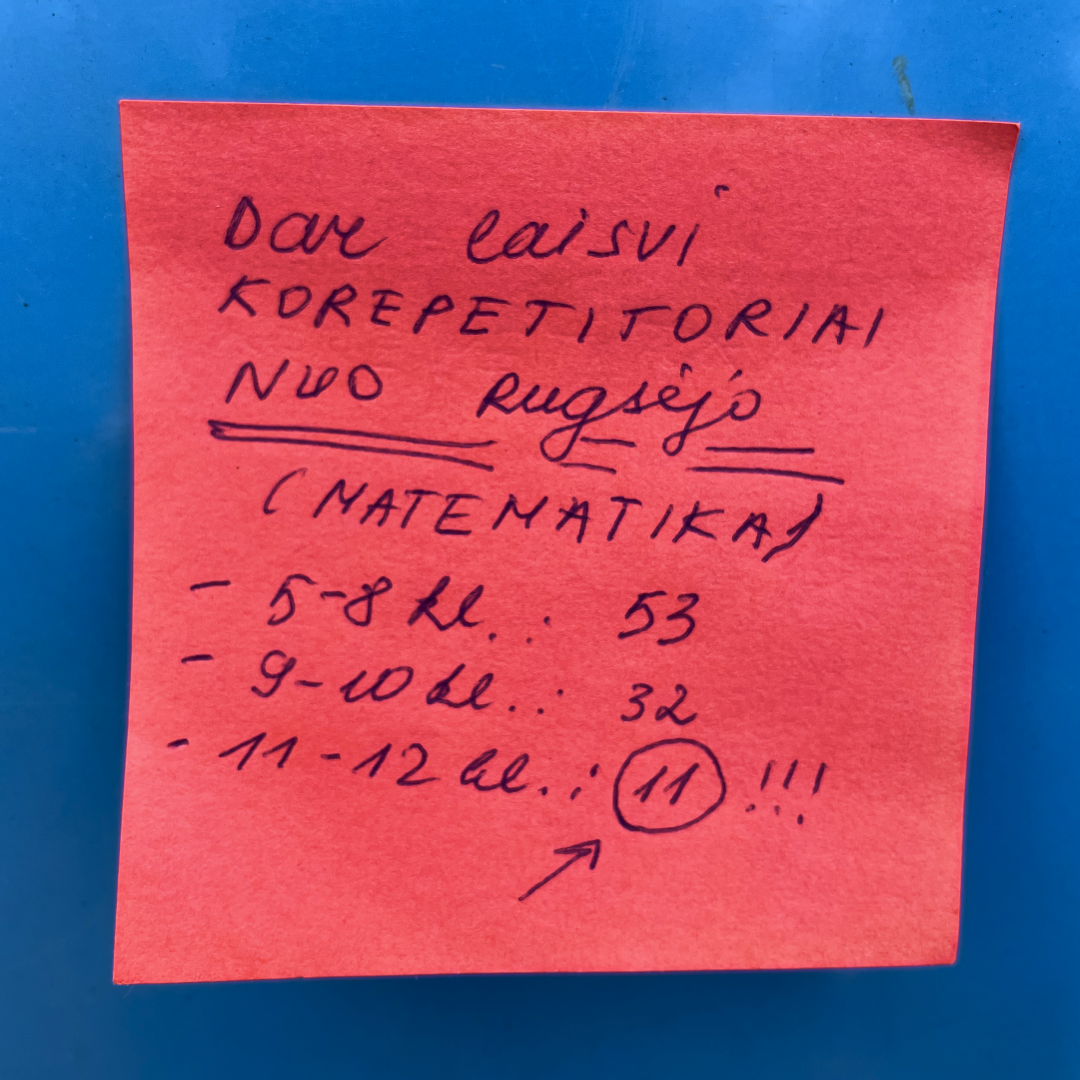 Dar laisvi
KOREPETITORIAI
NUO Rugsėjo
(MATEMATIKA)
- 5-8 kl.: 53
- 9-10 kl.: 32
- 11-12 kl.: 11 !!!